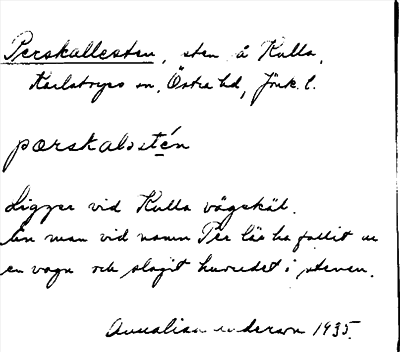 Perskallesten, sten å Kulla,
Karlstorps sn, Östra hd, Jönk. l.
pærskalɔstén
Ligger vid Kulla vägskäl.
En man vid namn Per läs ha fallit ur
en vagn och slagit huvudet i stenen.
Annalisa Anderson 1935.